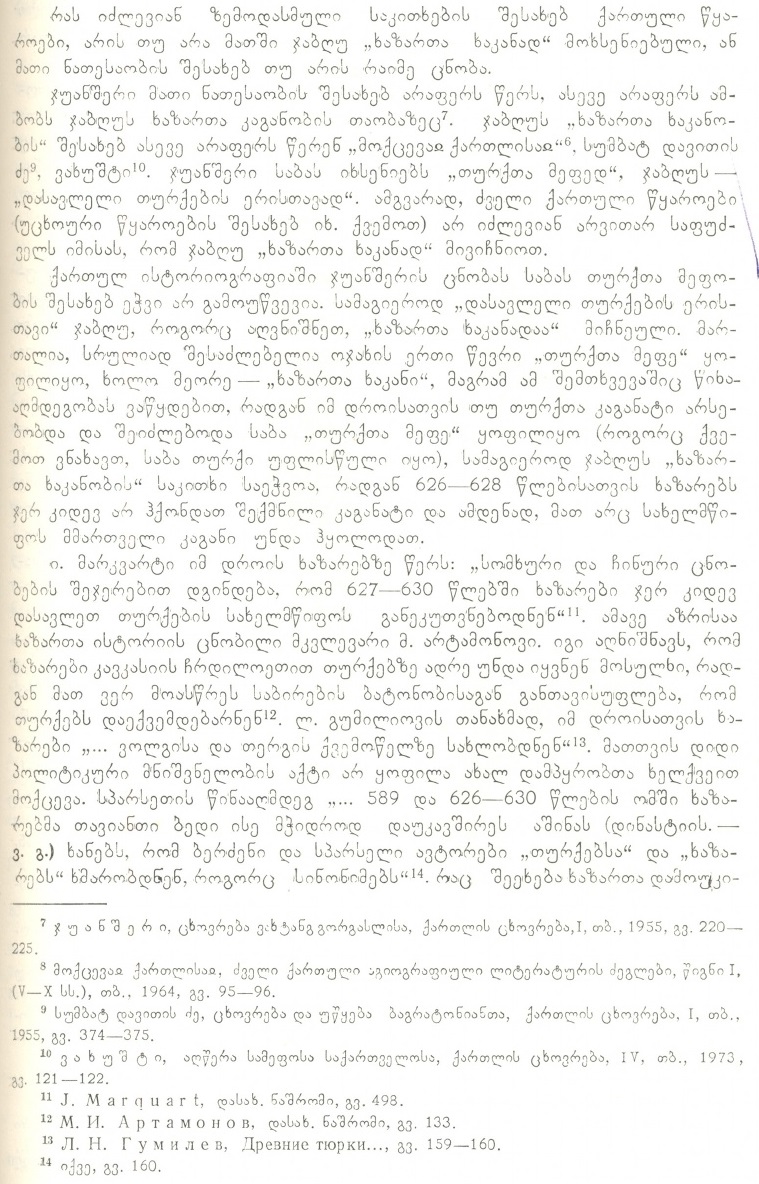 რას იძლევიან ზემოდასმული საკითხების შესახებ ქართული წყა-
როები, არის თუ არა მათში ჯაბღუ „ხაზართა ხაკანად“ მოხსენიებული, ან
მათი ნათესაობის შესახებ თუ არის რაიმე ცნობა.
ჯუანშერი მათი ნათესაობის შესახებ არაფერს წერს, ასევე არაფერს ამ-
ბობს ჯაბღუს ხაზართა კაგანობის თაობაზეც⁷. ჯაბღუს „ხაზართა ხაკანო-
ბის“ შესახებ ასევე არაფერს წერენ „მოქცევაჲ ქართლისაჲ“⁶, სუმბატ დავითის
ძე⁹, ვახუშტი¹⁰. ჯუანშერი საბას იხსენიებს „თურქთა მეფედ“, ჯაბღუს —
„დასავლელი თურქების ერისთავად“. ამგვარად, ძველი ქართული წყაროები
(უცხოური წყაროების შესახებ იხ. ქვემოთ) არ იძლევიან არვითარ საფუძ-
ველს იმისას, რომ ჯაბღუ „ხაზართა ხაკანად“ მივიჩნიოთ.
ქართულ ისტორიოგრაფიაში ჯუანშერის ცნობას საბას თურქთა მეფო-
ბის შესახებ ეჭვი არ გამოუწვევია. სამაგიეროდ „დასავლელი თურქების ერის-
თავი“ ჯაბღუ, როგორც აღვნიშნეთ, „ხაზართა ხაკანადაა“ მიჩნეული. მარ-
თალია, სრულიად შესაძლებელია ოჯახის ერთი წევრი „თურქთა მეფე“ ყო-
ფილიყო, ხოლო მეორე — „ხაზართა ხაკანი“, მაგრამ ამ შემთხვევაშიც წინა-
აღმდეგობას ვაწყდებით, რადგან იმ დროისათვის თუ თურქთა კაგანატი არსე-
ბობდა და შეიძლებოდა საბა „თურქთა მეფე“ ყოფილიყო (როგორც ქვე-
მოთ ვნახავთ, საბა თურქი უფლისწული იყო), სამაგიეროდ ჯაბღუს „ხაზარ-
თა ხაკანობის“ საკითხი საეჭვოა, რადგან 626—628 წლებისათვის ხაზარებს
ჯერ კიდევ არ ჰქონდათ შექმნილი კაგანატი და ამდენად, მათ არც სახელმწი-
ფოს მმართველი კაგანი უნდა ჰყოლოდათ.
ი. მარკვარტი იმ დროის ხაზარებზე წერს: „სომხური და ჩინური ცნო-
ბების შეჯერებით დგინდება, რომ 627—630 წლებში ხაზარები ჯერ კიდევ
დასავლეთ თურქების სახელმწიფოს განეკუთვნებოდნენ“¹¹. ამავე აზრისაა
ხაზართა ისტორიის ცნობილი მკვლევარი მ. არტამონოვი. იგი აღნიშნავს, რომ
ხაზარები კავკასიის ჩრდილოეთით თურქებზე ადრე უნდა იყვნენ მოსულხი, რად-
გან მათ ვერ მოასწრეს საბირების ბატონობისაგან განთავისუფლება, რომ
თურქებს დაექვემდებარნენ¹². ლ. გუმილიოვის თანახმად, იმ დროისათვის ხა-
ზარები „... ვოლგისა და თერგის ქვემოწელზე სახლობდნენ“¹³. მათთვის დიდი
პოლიტიკური მნიშვნელობის აქტი არ ყოფილა ახალ დამპყრობთა ხელქვეით
მოქცევა. სპარსეთის წინააღმდეგ „... 589 და 626—630 წლების ომში ხაზა-
რებმა თავიანთი ბედი ისე მჭიდროდ დაუკავშირეს აშინას (დინასტიის. —
ვ. გ.) ხანებს, რომ ბერძენი და სპარსელი ავტორები „თურქებსა“ და „ხაზა-
რებს“ ხმარობდნენ, როგორც სინონიმებს“¹⁴. რაც შეეხება ხაზართა დამოუკი-
⁷ ჯუანშერი, ცხოვრება ვახტანგ გორგასლისა, ქართლის ცხოვრება, I, თბ., 1955, გვ. 220—
225.
⁸ მოქცევაჲ ქართლისაჲ, ძველი ქართული აგიოგრაფიული ლიტერატურის ძეგლები, წიგნი I,
(V—X სს.), თბ., 1964, გვ. 95—96.
⁹ სუმბატ დავითის ძე, ცხოვრება და უწყება ბაგრატონიანთა, ქართლის ცხოვრება, I, თბ.,
1955, გვ. 374—375.
¹⁰ ვახუშტი, აღწერა სამეფოსა საქართველოსა, ქართლის ცხოვრება, IV, თბ., 1973,
გვ. 121—122.
¹¹ J. Marquart, დასახ. ნაშრომი, გვ. 498.
¹² М. И. Артамонов, დასახ. ნაშრომი, გვ. 133.
¹³ Л. Н. Гумилев, Древние тюрки..., გვ. 159—160.
¹⁴ იქვე, გვ. 160.